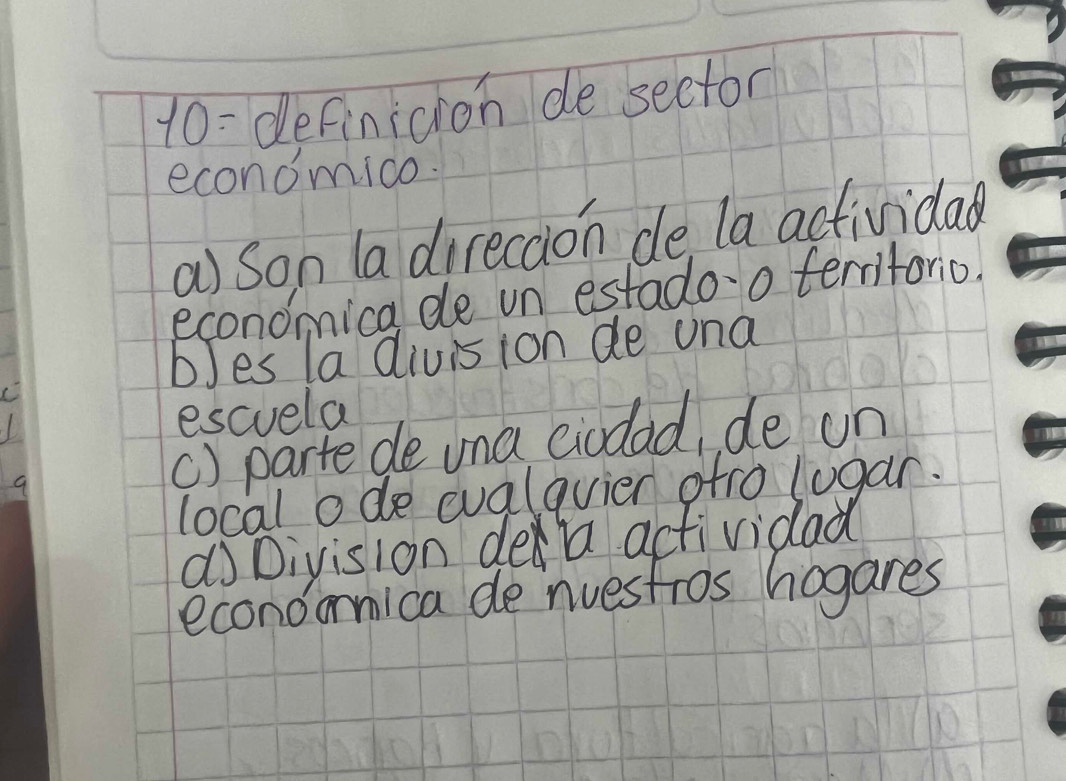 10- definición de sector
económico.
a) Son la dirección de la actividad
económica de un estado o territorio.
b) es la division de una
escuela
c) parte de una ciudad, de un
local o de cualquier otro lugar.
d) Division de la actividad
económica de nuestros hogares